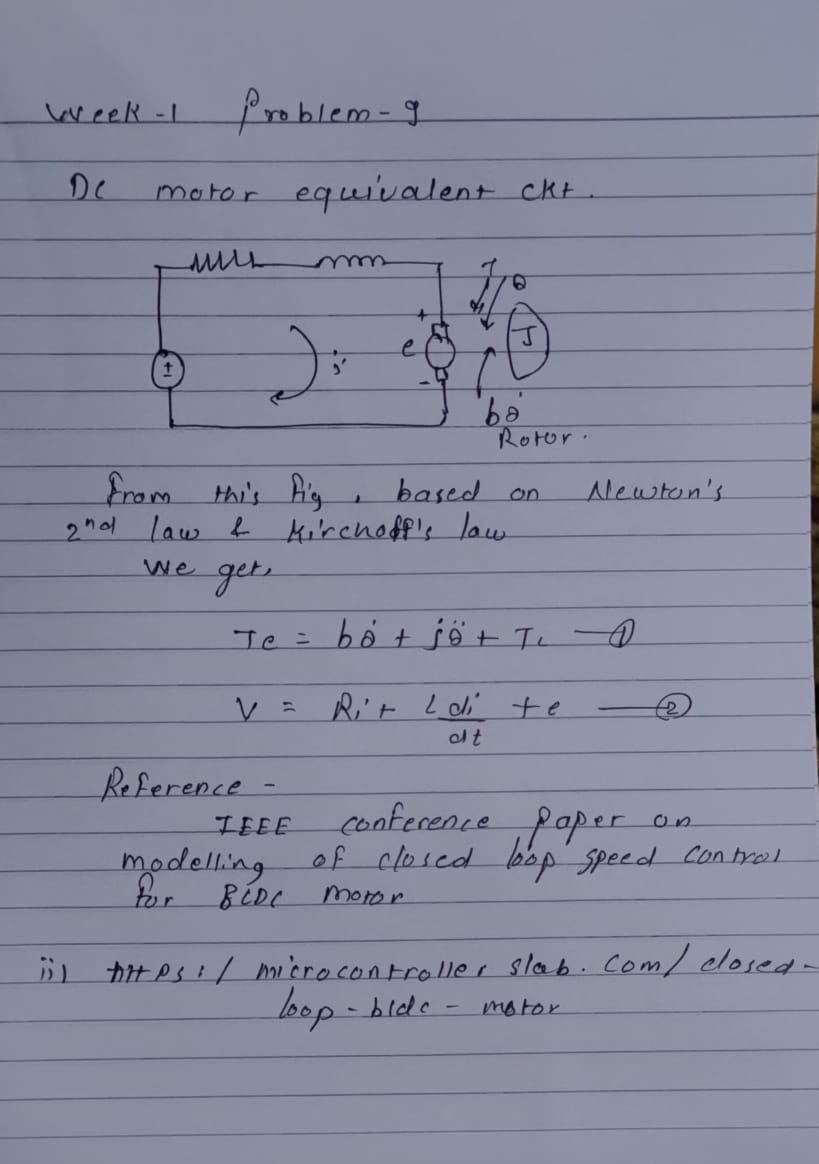 Week-1 Problem-9
DC motor equivalent ckt.
T θ
+
e
J
±
i
-
bθ̇
Rotor.
From this fig, based on Newton's
2nd law & Kirchoff's law
We get,
Te = bθ̇ + jθ̈ + TL — ①
V = Ri + L di/dt + e — ②
Reference -
IEEE conference paper on
modelling of closed loop speed control
for BLDC motor
ii) https:/ microcontrollerslab.com/closed-
loop-bldc-motor